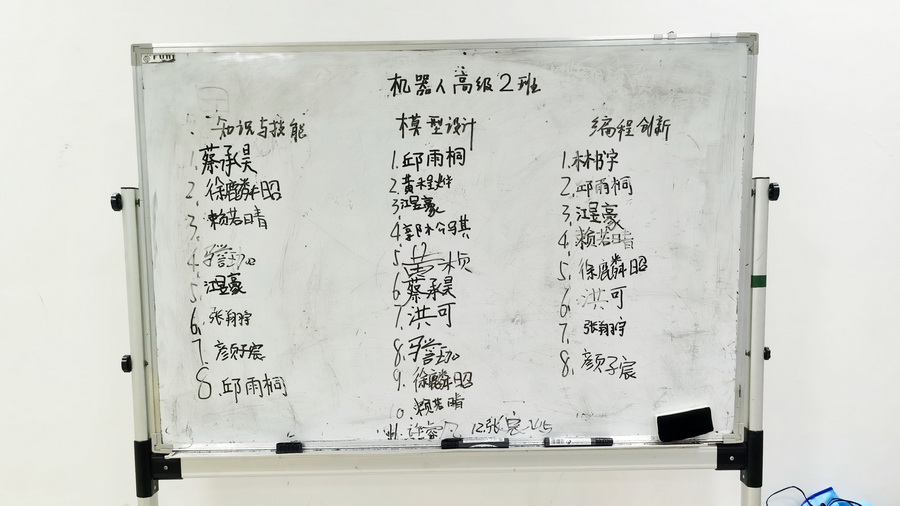 机器人高级2班
知识与技能
1.蔡承昊
2.徐麟昭
3.赖若晴
4.
5.江昱豪
6.张翔宇
7.彦页子宸
8.邱雨桐
模型设计
1.邱雨桐
2.黄
3.江昱豪
4.郭
5.黄桢
6.蔡承昊
7.洪可
8.
9.徐麟昭
10.赖若晴
11. 12.张
编程创新
1.林
2.邱雨桐
3.江昱豪
4.赖若晴
5.徐麟昭
6.洪可
7.张翔宇
8.颜子宸